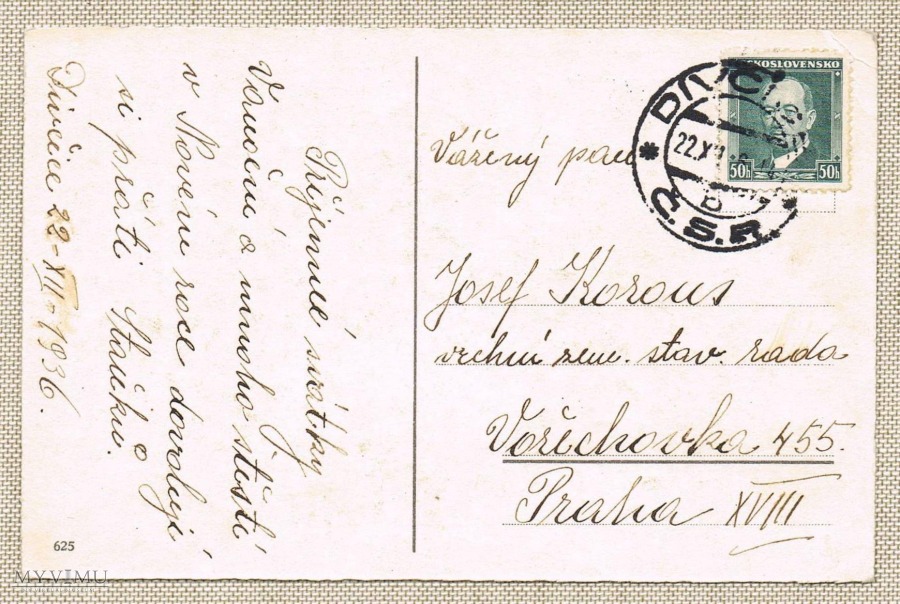 Příjemné svátky
Vánoční a mnoho štěstí
v Novém roce dovolují
si přáti
Dívčice 22-XII-1936.
625
ČESKOSLOVENSKO
50h 50h
DIVČICE
22.XII
Č.S.R.
Vážený pan
Josef Korous
vrchní zem. stav. rada
Vořechovka 455.
Praha XVIII
MYVIMU